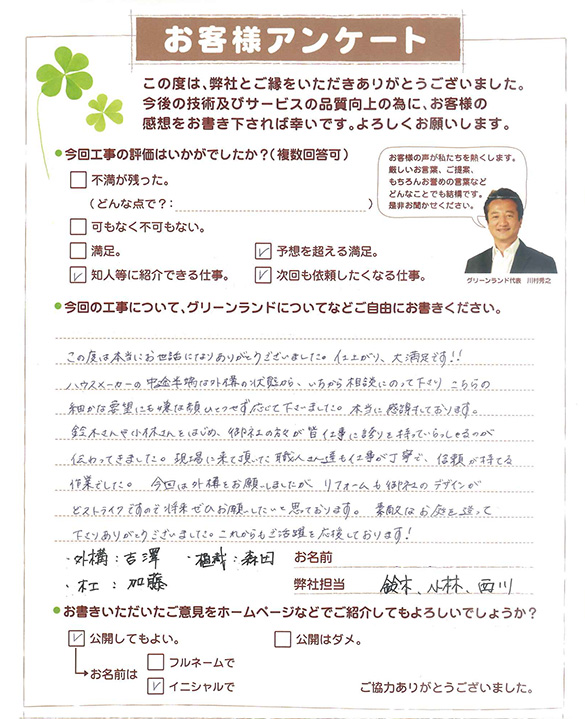 お客様アンケート
この度は、弊社とご縁をいただきありがとうございました。
今後の技術及びサービスの品質向上の為に、お客様の
感想をお書き下されば幸いです。よろしくお願いします。
●今回工事の評価はいかがでしたか？（複数回答可）
不満が残った。
（どんな点で？：　）
可もなく不可もない。
満足。
予想を超える満足。
知人等に紹介できる仕事。
次回も依頼したくなる仕事。
お客様の声が私たちを熱くします。
厳しいお言葉、ご提案、
もちろんお誉めの言葉など
どんなことでも結構です。
是非お聞かせください。
グリーンランド代表　川村芳之
●今回の工事について、グリーンランドについてなどご自由にお書きください。
この度は本当にお世話になりありがとうございました。仕上がり、大満足です!!
ハウスメーカーの中途半端な外構の状態から、いちから相談にのって下さり こちらの
細かな要望にも嫌な顔ひとつせず応じて下さいました。本当に感謝しております。
鈴木さんや小林さんをはじめ、御社の方々が皆仕事に誇りを持っていらっしゃるのが
伝わってきました。現場に来て頂いた職人さん達も仕事が丁寧で、信頼が持てる
作業でした。 今回は外構をお願いしましたが、リフォームも御社のデザインが
どストライクですので将来ぜひお願いしたいと思っております。素敵なお庭を造って
下さりありがとうございました。これからもご活躍を応援しております!
・外構：吉澤 ・植栽：森田
・大工：加藤
お名前
弊社担当 鈴木、小林、西川
●お書きいただいたご意見をホームページなどでご紹介してもよろしいでしょうか？
公開してもよい。
公開はダメ。
お名前は
フルネームで
イニシャルで
ご協力ありがとうございました。